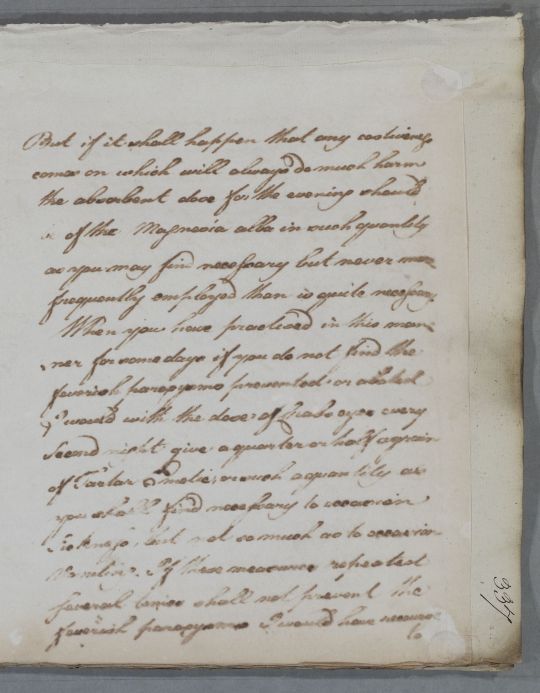 But if it shall happen that any costiveness
comes on which will always do much harm
the absorbent dose for the evening should
be of the Magnesia alba in such quantity
as you may find necessary but never more
frequently employed than is quite necessary
When you have practised in this man
ner for some days if you do not find the
feverish paroxysms prevented or abated
I would with the dose of Crabs eyes every
Second night give a quarter or half a grain
of Tartar Emetic or such a quantity as
you shall find necessary to occasion
Sickness, but not so much as to occasion
Vomiting. If these measures repeated
several times shall not prevent the
feverish paroxysms I would have recourse
to
337